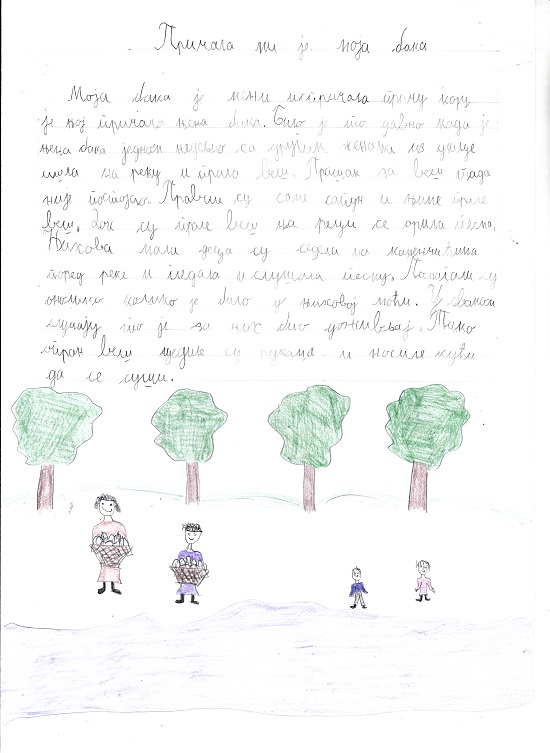 Причала ми је моја бака
Моја бака је мени испричала причу коју
је њој причала њена бака. Било је то давно када је
њена бака једном недељно са другим женама из улице
ишла на реку и прала веш. Прашак за веш тада
није постојао. Правили су саме сапун и њиме прале
веш. Док су прале веш на реци се орила песма.
Њихова мала деца су седела на каменчићима
поред реке и гледала и слушала песму. Помагали су
онолико колико је било у њиховој моћи. У сваком
случају то је за њих био доживљај. Тако
опран веш цедиле су рукама и носиле кући
да се суши.